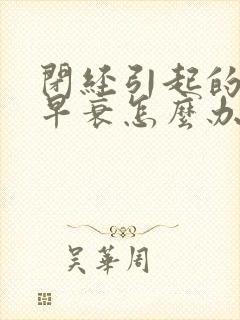 閉經引起的
早衰怎麼办
吴華周